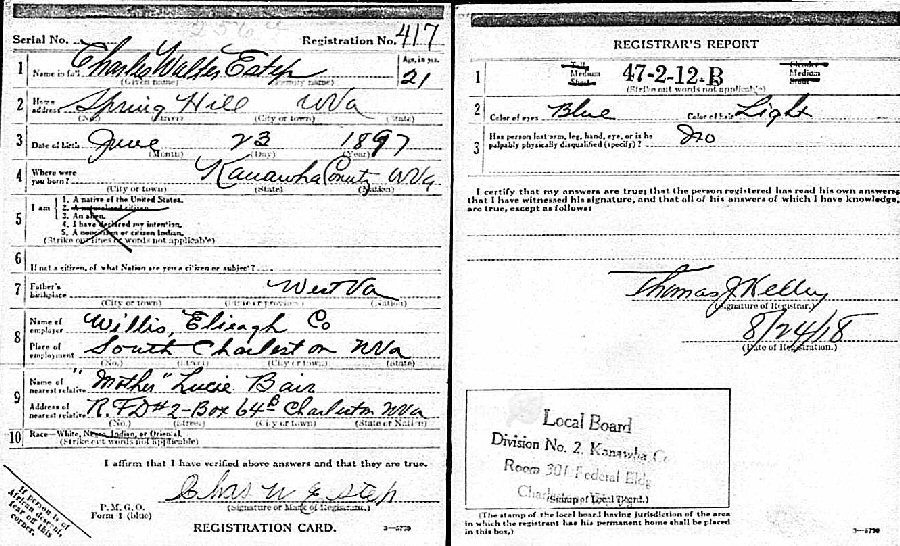 Serial No. Registration No. 417
1 Name in full Charles Walter Estep Age, in yrs. 21
(Given name) (Family name)
2 Home address Spring Hill WVa
(No.) (Street) (City or town) (State)
3 Date of birth June 23 1897
(Month) (Day) (Year)
4 Where were you born? Kanawha County WVa
(City or town) (State) (Nation)
5 I am
1. A native of the United States.
2. A naturalized citizen.
3. An alien.
4. I have declared my intention.
5. A noncitizen or citizen Indian.
(Strike out lines or words not applicable)
6 If not a citizen, of what Nation are you a citizen or subject?
7 Father's birthplace West Va
(City or town) (State or province) (Nation)
8 Name of employer Willis, Co
Place of employment South Charleston WVa
(No.) (Street) (City or town) (State)
9 Name of nearest relative "Mother" Lucie Bair
Address of nearest relative R.F.D #2-Box 64B Charleston WVa
(No.) (Street) (City or town) (State or Nation)
10 Race—White, Negro, Indian, or Oriental.
(Strike out words not applicable)
I affirm that I have verified above answers and that they are true.
Chas W Estep
P.M.G.O.
Form 1 (blue)
(Signature or Mark of Registrant.)
REGISTRATION CARD.
If person is of
African descent,
tear off this
corner.
REGISTRAR'S REPORT
1 Tall Medium Short 47-2-12.B Slender Medium Stout
(Strike out words not applicable)
2 Color of eyes Blue Color of hair Light
3 Has person lost arm, leg, hand, eye, or is he
palpably physically disqualified (specify)? No
I certify that my answers are true; that the person registered has read his own answers;
that I have witnessed his signature, and that all of his answers of which I have knowledge,
are true, except as follows:
Thomas J Kelley
(Signature of Registrar.)
8/24/18
(Date of Registration.)
Local Board
Division No. 2, Kanawha Co
Room 301 Federal Bldg
(Stamp of Local Board.)
(The stamp of the local board having jurisdiction of the area
in which the registrant has his permanent home shall be placed
in this box.)